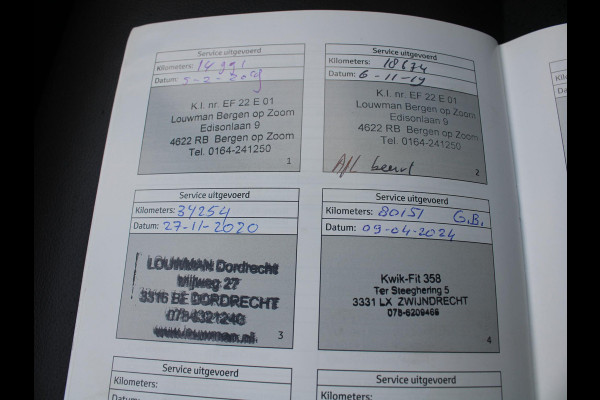 Service uitgevoerd
Kilometers: 14991
Datum: 5-2-2019
K.I. nr. EF 22 E 01
Louwman Bergen op Zoom
Edisonlaan 9
4622 RB Bergen op Zoom
Tel. 0164-241250
1
Service uitgevoerd
Kilometers: 18674
Datum: 6-11-19
K.I. nr. EF 22 E 01
Louwman Bergen op Zoom
Edisonlaan 9
4622 RB Bergen op Zoom
Tel. 0164-241250
beurt
2
Service uitgevoerd
Kilometers: 34254
Datum: 27-11-2020
LOUWMAN Dordrecht
Vijfweg 27
3316 BE DORDRECHT
078-6321240
www.louwman.nl
3
Service uitgevoerd
Kilometers: 80151 G.B.
Datum: 09-04-2024
Kwik-Fit 358
Ter Steeghering 5
3331 LX ZWIJNDRECHT
078-6209466
4
Service uitgevoerd
Kilometers:
Service uitgevoerd
Kilometers: